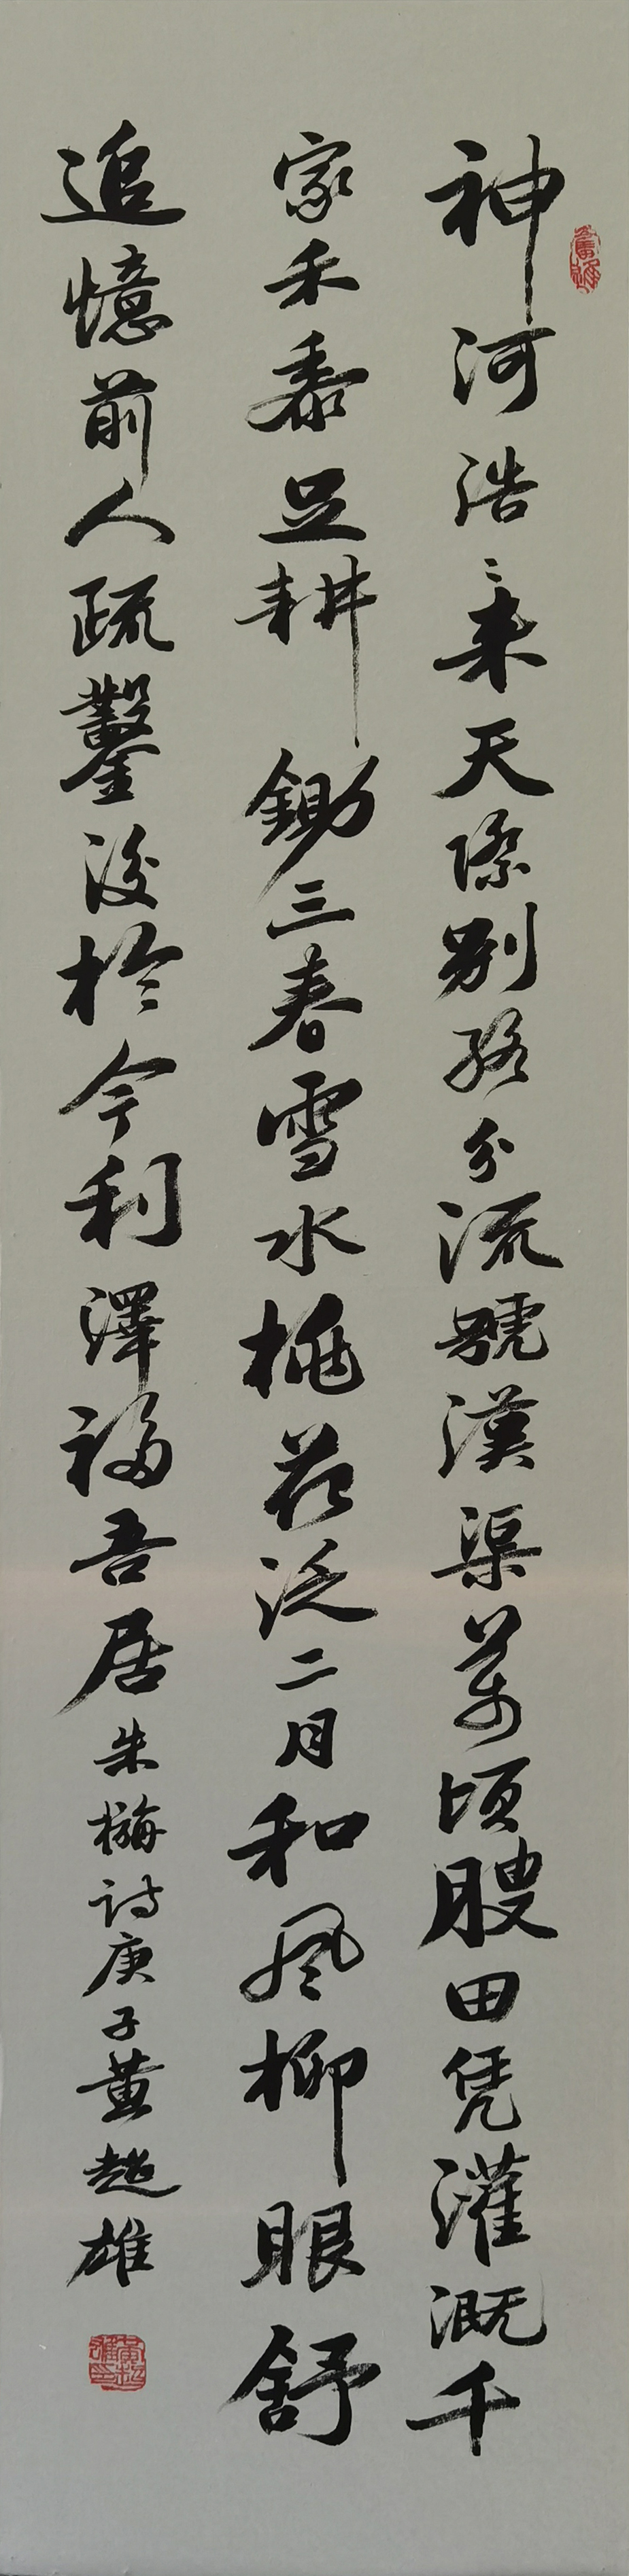 神河浩〻来天際別路分流號漢渠万頃膄田凭灌溉千
家禾黍足耕鋤三春雪水桃花泛二月和风柳眼舒
追憶前人疏鑿後於今利澤福吾居朱㮵詩庚子黄超雄